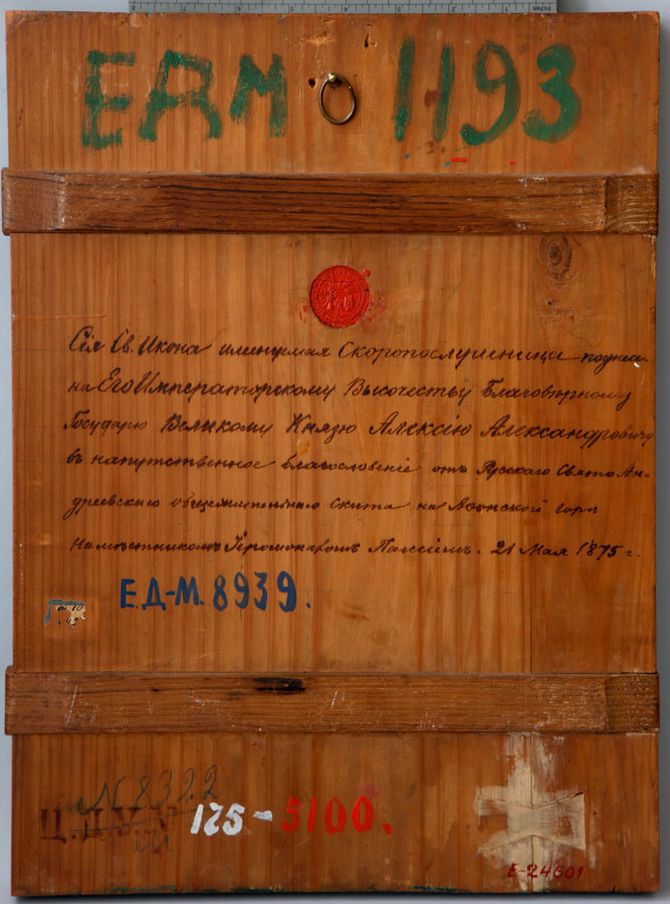 ЕДМ 1193
Сія Св. Икона именуемая Скоропослушница поднесе-
на Его Императорскому Высочеству Благовѣрному
Государю Великому Князю Алексію Александровичу
въ напутственное благословеніе отъ Русскаго Свято Ан-
дреевскаго общежительнаго скита на Аѳонской горѣ
Намѣстникомъ Іеромонахомъ Паисіемъ. 21 Мая 1875 г.
Е.Д-М. 8939.
N 8322
175-5100.
Е-24301